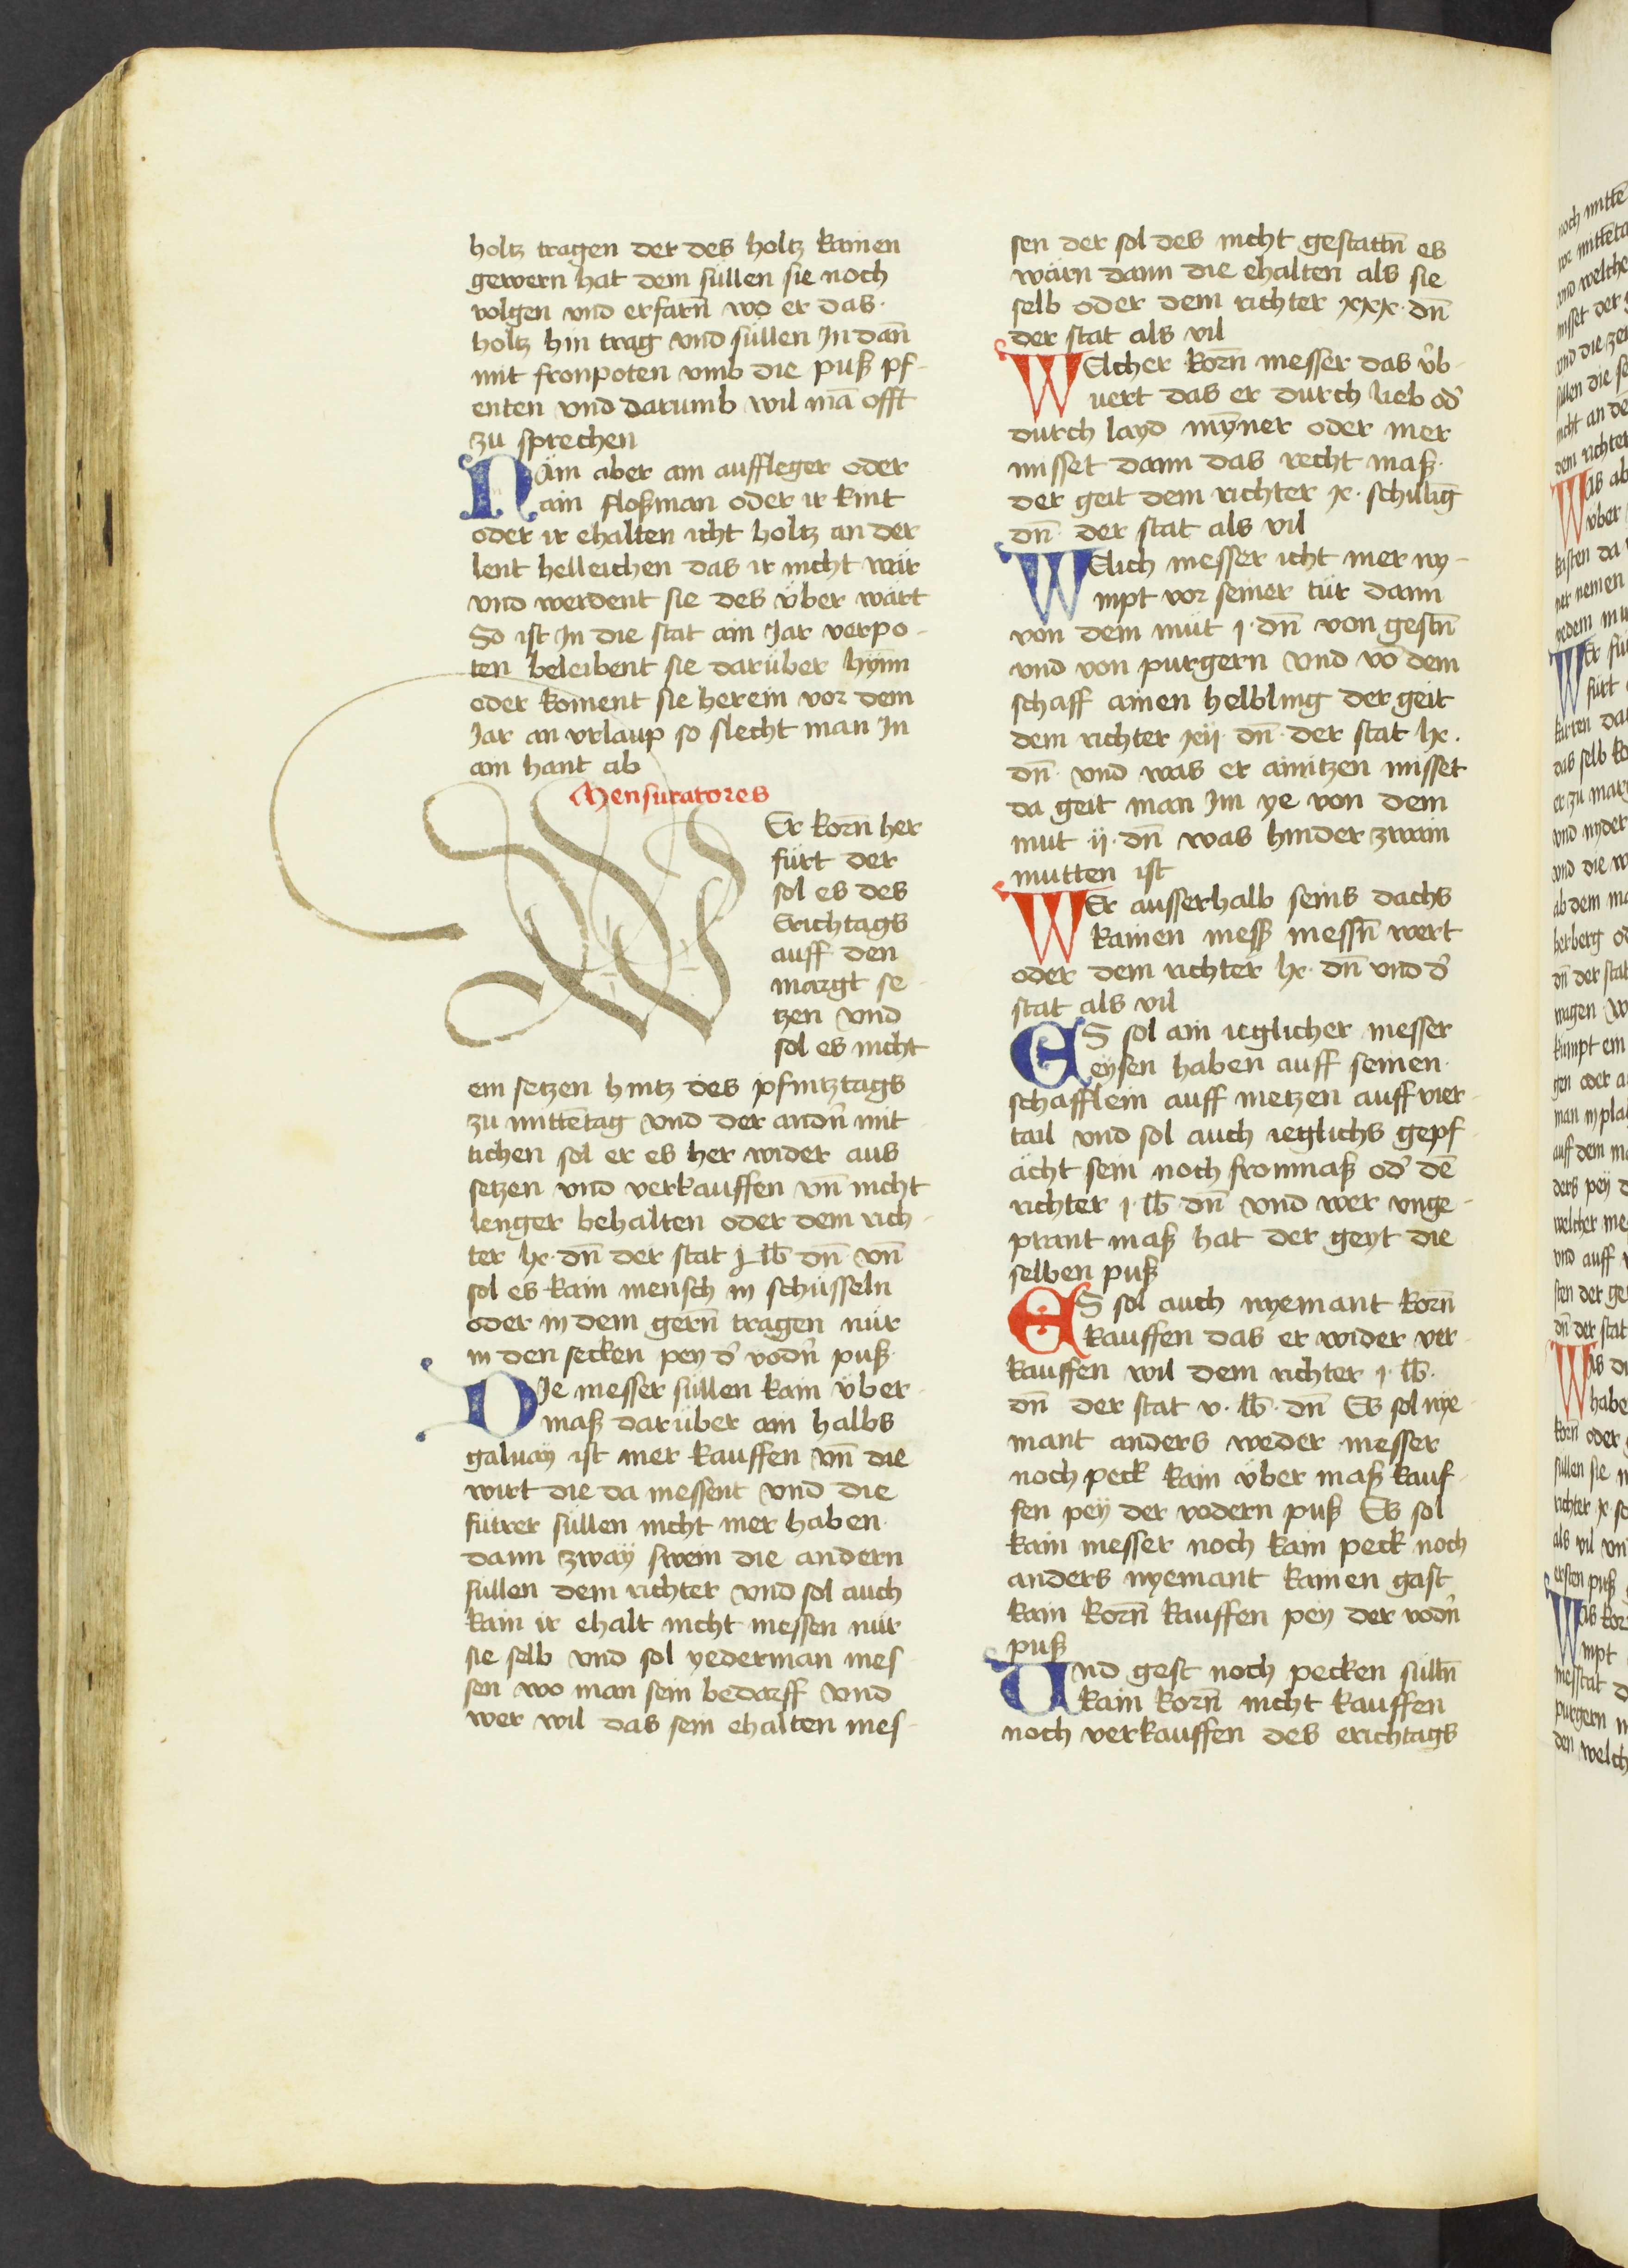 holtz tragen der des holtz kainen
gewern hat dem süllen sie noch
volgen vnd erfarn̄ wo er das
holtz hin trag vnd süllen Jn dan̄
mit fronpoten vmb die puß pf-
enten vnd darumb wil mā offt
zu sprechen
Näm aber ain auffleger oder
ain floßman oder ir kint
oder ir ehalten icht holtz an der
lent helleichen das ir nicht wär
vnd werdent sie des über wärt
So ist Jn die stat ain Jar verpo-
ten beleibent sie darüber hÿnn
oder koment sie herein vor dem
Jar an vrlaup so slecht man Jn
ain hant ab
Mensuratores
WEr korn̄ her
fürt der
sol es des
Erichtags
auff den
margt se-
tzen vnd
sol es nicht
ein setzen hintz des pfintztags
zu mittētag vnd der andn̄ mit
tichen sol er es her wider aus
setzen vnd verkauffen vn̄ nicht
lenger behalten oder dem rich-
ter lx. dn̄ der stat j lb dn̄ vn̄
sol es kain mensch in schüsseln
oder in dem gern̄ tragen nür
in den secken pey d' vodn̄ puß
DJe messer süllen kain über-
maß darüber ain halbs
galuay ist mer kauffen vn̄ die
wirt die da messent vnd die
fütrer süllen nicht mer haben
dann zwaÿ swein die andern
süllen dem richter vnd sol auch
kain ir ehalt nicht messen nür
sie selb vnd sol yederman mes-
sen wo man sein bedarff vnd
wer wil das sein ehalten mes-
sen der sol des nicht gestattn̄ es
wärn dann die ehalten als sie
selb oder dem richter xxx. dn̄
der stat als vil
WElcher korn̄ messer das v̈b-
uert das er durch lieb od'
durch layd mÿner oder mer
misset dann das recht maß
der geit dem richter x. schillīg
dn̄ der stat als vil
WElich messer icht mer ny-
mpt vor seiner tür dann
von dem müt j. dn̄ von gestn̄
vnd von purgern vnd vō dem
schaff ainen helbling der geit
dem richter xij. dn̄ der stat lx.
dn̄ vnd was er ainitzen misset
da geit man Jm ye von dem
mut ij. dn̄ was hinder zwain
mutten ist
WEr ausserhalb seins dachs
kainen mess messn̄ wert
oder dem richter lx. dn̄ vnd d'
stat als vil
ES sol ain ieglicher messer
eÿsen haben auff seinen
schäfflein auff metzen auff vier-
tail vnd sol auch ieglichs gepf-
ächt sein noch fronmaß od' dē
richter j. lb dn̄ vnd wer vnge-
prant maß hat der geyt die
selben puß
ES sol auch nyemant korn̄
kauffen das er wider ver-
kauffen wil dem richter j. lb.
dn̄ der stat v. lb. dn̄ Es sol nye-
mant anders weder messer
noch peck kain über maß kauf-
fen peÿ der vodern puß Es sol
kain messer noch kain peck noch
anders nyemant kainen gast
kain korn̄ kauffen peÿ der vodn̄
puß
Und gest noch pecken sülln̄
kain korn̄ nicht kauffen
noch verkauffen des erichtags